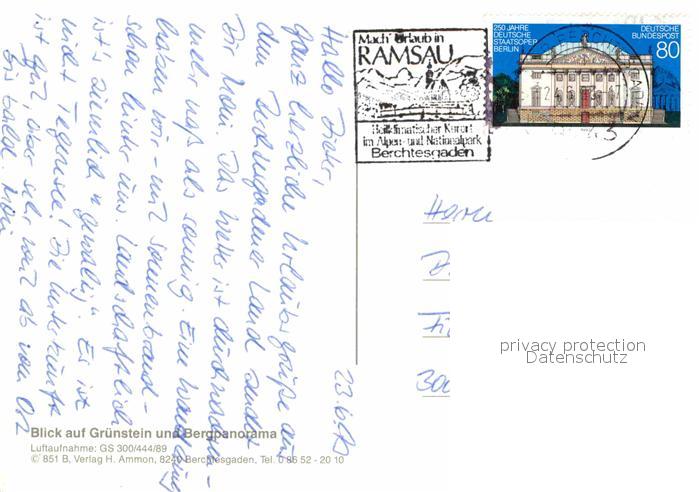 Hallo
ganz herzliche Urlaubsgrüße aus
dem Berchtesgadener Land sendet
Dir Moni. Das Wetter ist durchwachsen –
mehr naß als sonnig. Eine Wanderung
haben wir – mit Sonnenbrand –
schon hinter uns. Landschaftlich
ist's ziemlich "gewaltig". Es ist
nicht Tegernsee! Die Unterkunft
ist gut, aber sehr weit ab vom Ort
Bis bald. Moni
Mach' Urlaub in
RAMSAU
Heilklimatischer Kurort
im Alpen- und Nationalpark
Berchtesgaden
250 JAHRE
DEUTSCHE
STAATSOPER
BERLIN
DEUTSCHE
BUNDESPOST
80
Herrn
privacy protection
Datenschutz
Blick auf Grünstein und Bergpanorama
Luftaufnahme: GS 300/444/89
© 851 B, Verlag H. Ammon, 8240 Berchtesgaden, Tel. 0 86 52 - 20 10